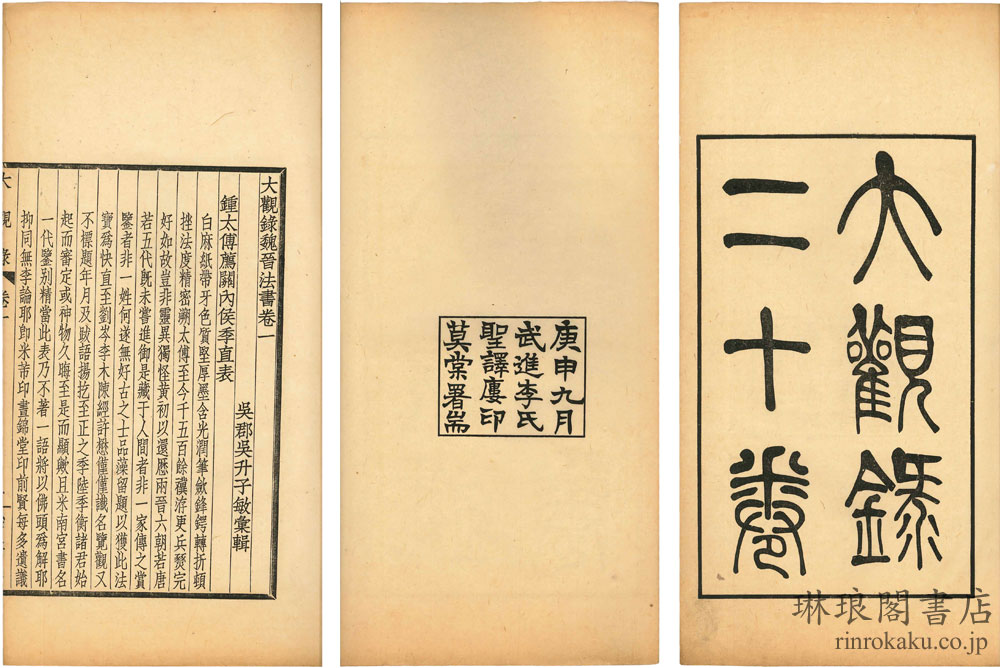 大觀錄
二十卷
庚申九月
武進李氏
聖譯廎印
莫棠署耑
大觀錄魏晉法書卷一
吳郡吳升子敏彙輯
鍾太傅薦關內侯季直表
白麻紙帶牙色質堅厚墨含光潤筆斂鋒鍔轉折頓
挫法度精密溯太傅至今千五百餘禩洊更兵燹完
好如故豈非靈異獨怪黃初以還歷兩晉六朝若唐
若五代旣未嘗進御是藏于人間者非一家傳之賞
鑒者非一姓何遂無好古之士品藻留題以獲此法
寶爲快直至劉岑李木陳經許懋僅僅識名覽觀又
不標題年月及跋語揚扢至正之季陸季衡諸君始
起而審定或神物久晦至是而顯歟且米南宮書名
一代鑒別精當此表乃不著一語將以佛頭爲解耶
抑同無李論耶卽米芾印晝錦堂印前賢每多遺識
大觀錄 卷一
琳琅閣書店
rinrokaku.co.jp